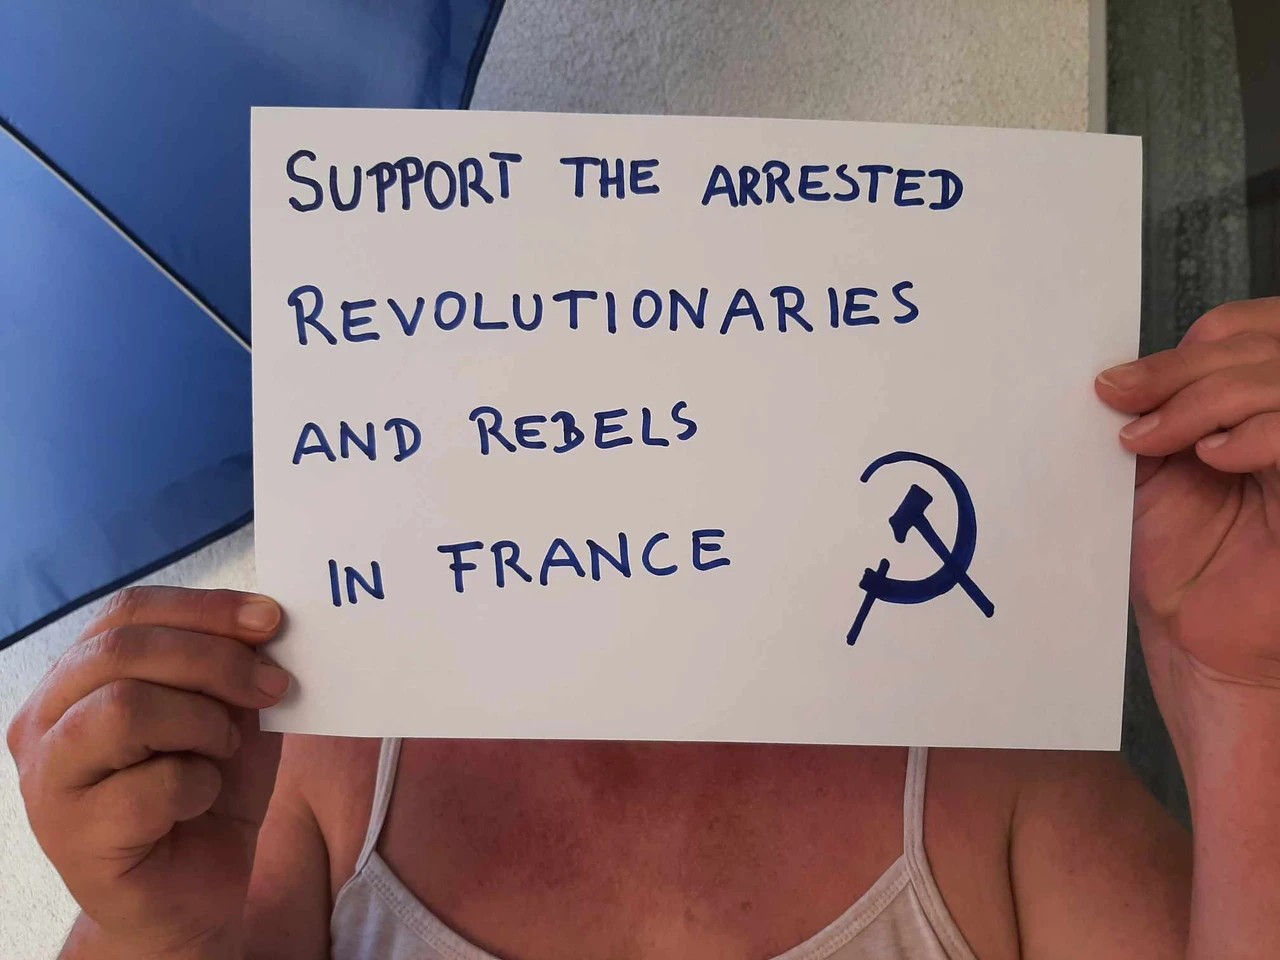 SUPPORT THE ARRESTED
REVOLUTIONARIES
AND REBELS
IN FRANCE